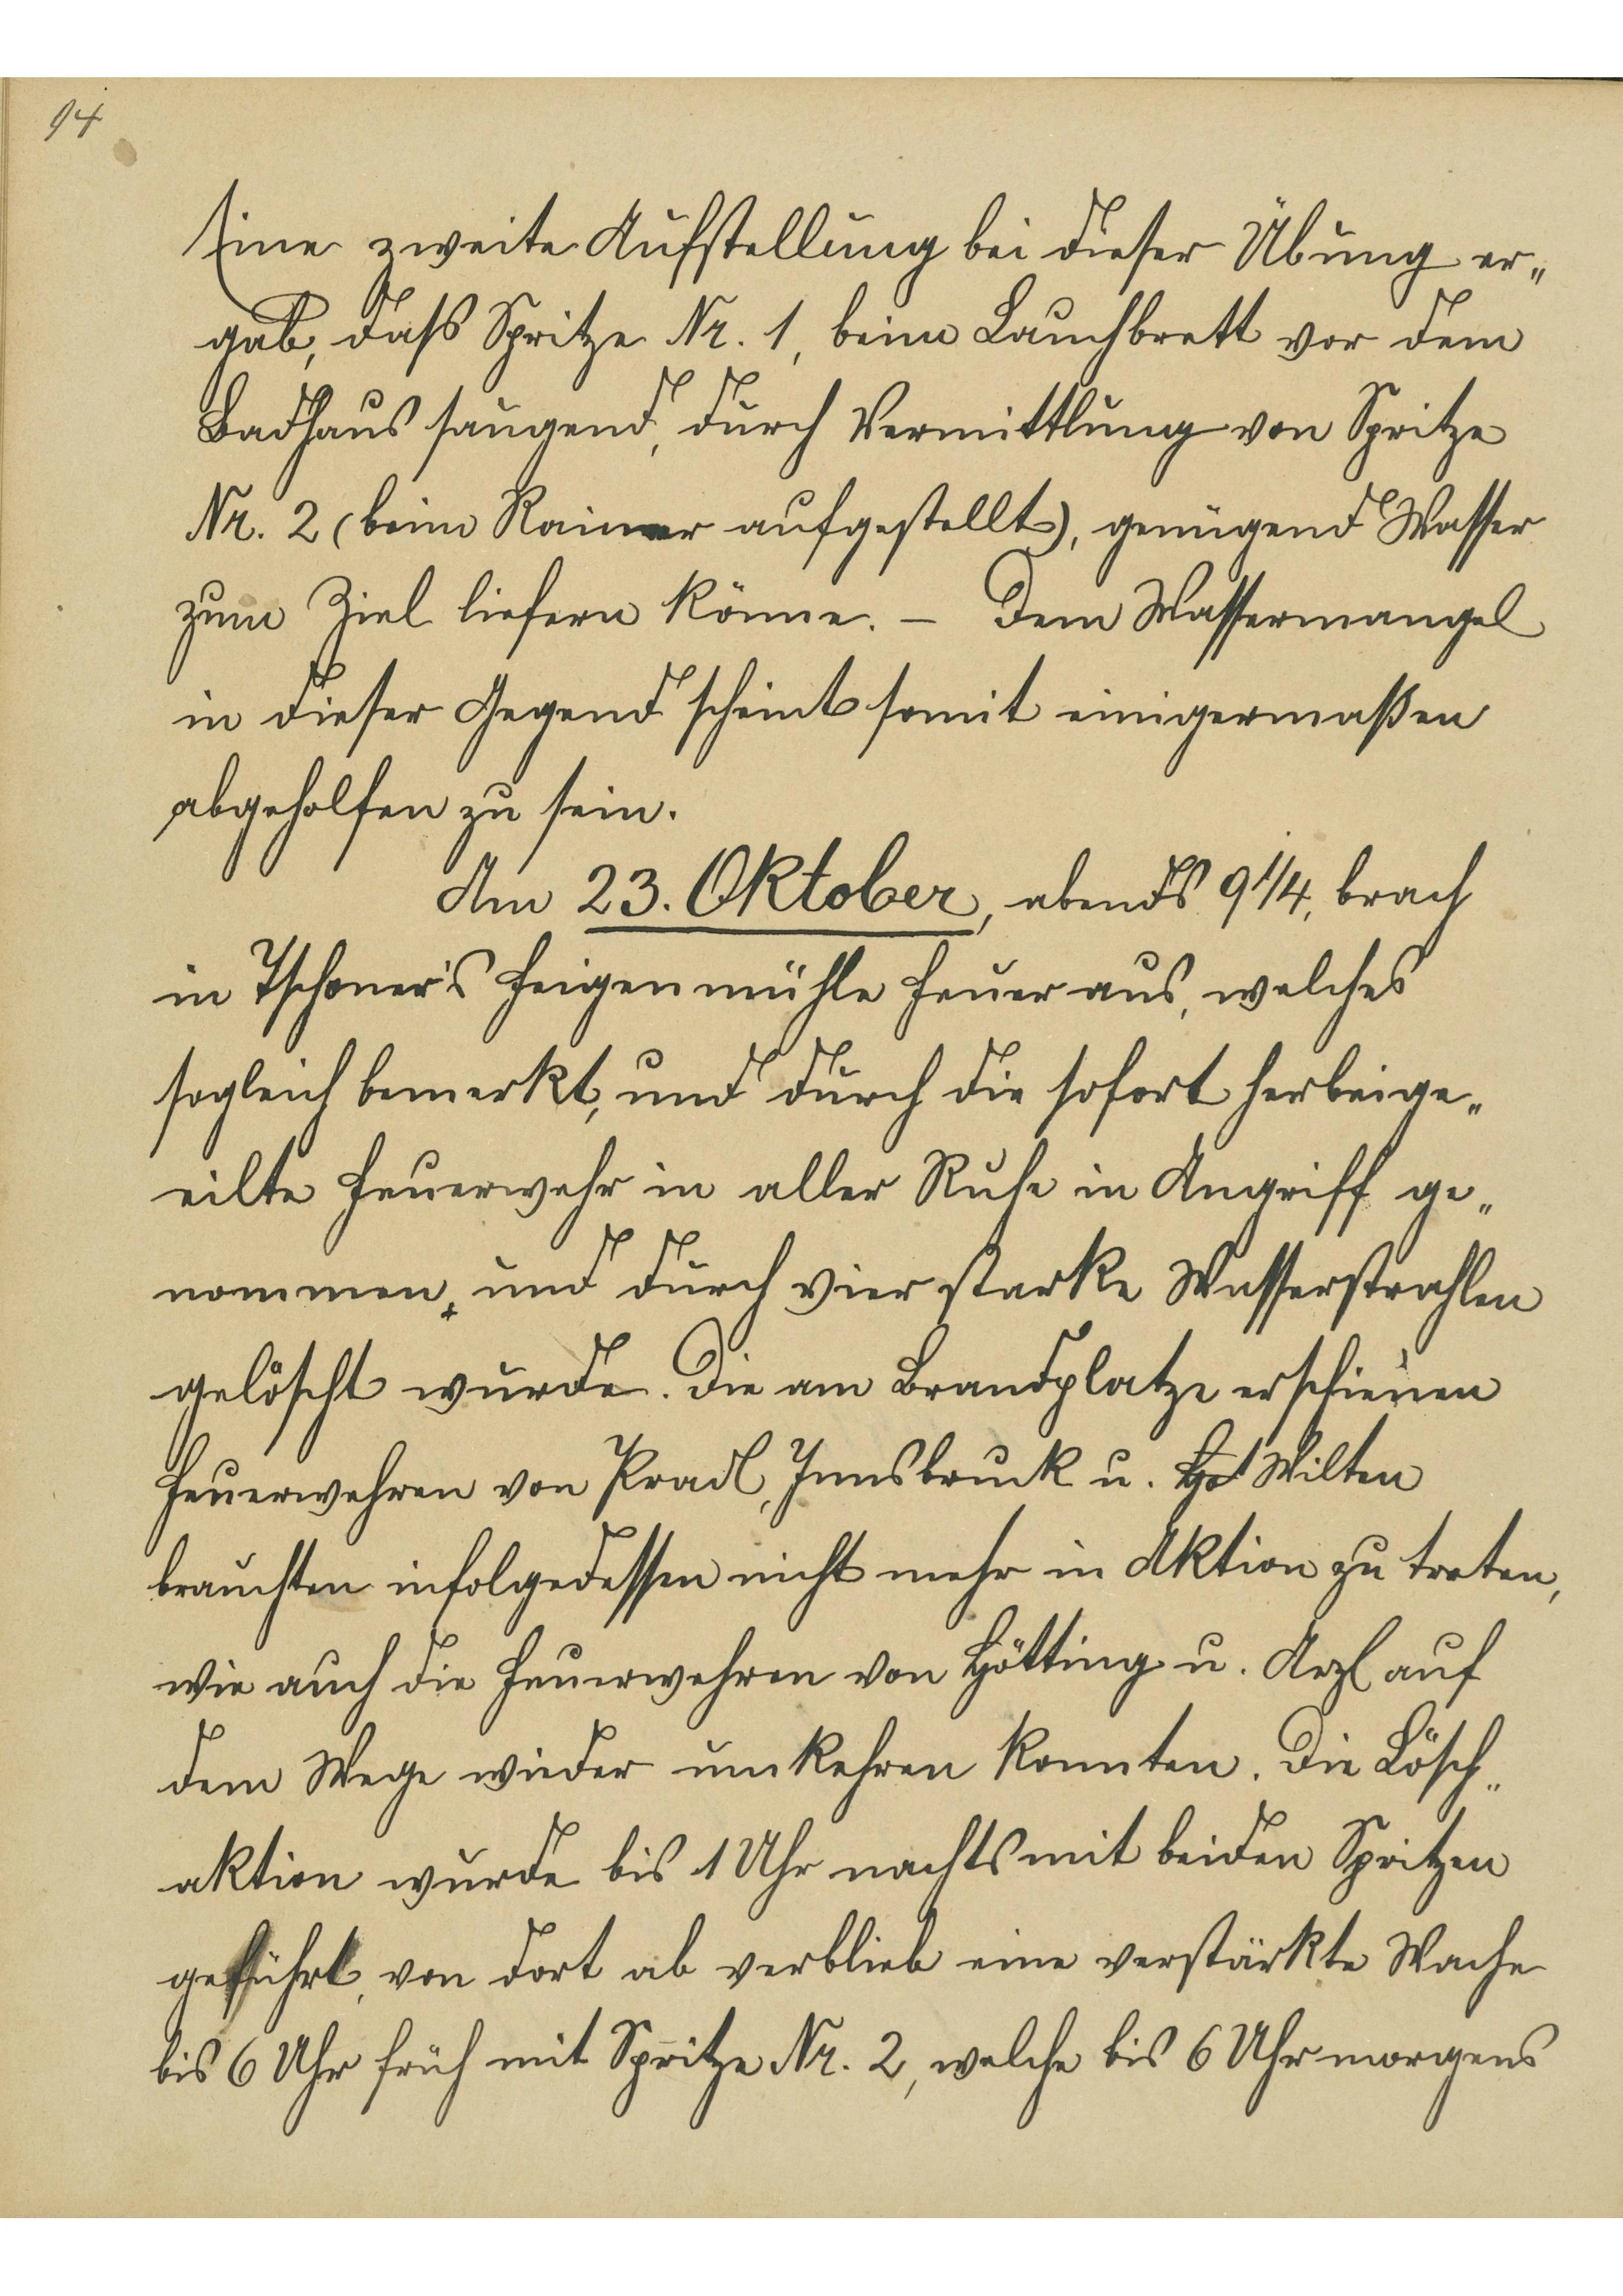 94
Eine zweite Aufstellung bei dieser Übung er„
gab, daß Spritze Nr. 1, beim Lauchbrett vor dem
Badhaus saugend, durch Vermittlung von Spritze
Nr. 2 (beim Rainer aufgestellt), genügend Wasser
zum Ziel liefern könne. – Dem Wassermangel
in dieser Gegend scheint somit einigermaßen
abgeholfen zu sein.
Am 23. Oktober, abends 9 1/4, brach
in Tschoner's Feigenmühle Feuer aus, welches
sogleich bemerkt, und durch die sofort herbeige„
eilte Feuerwehr in aller Ruhe in Angriff ge„
nommen, und durch vier starke Wasserstrahlen
gelöscht wurde. Die am Brandplatze erschienen
Feuerwehren von Pradl, Innsbruck u. Höt Wilten
brauchten infolgedessen nicht mehr in Aktion zu treten,
wie auch die Feuerwehren von Hötting u. Arzl auf
dem Wege wieder umkehren konnten. Die Lösch„
aktion wurde bis 1 Uhr nachts mit beiden Spritzen
geführt, von dort ab verblieb eine verstärkte Wache
bis 6 Uhr früh mit Spritze Nr. 2, welche bis 6 Uhr morgens